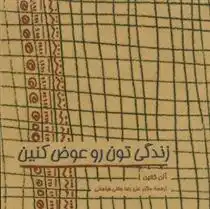 زندگی تون رو عوض کنین
آلن کوهن
ترجمه دکتر علی رضا